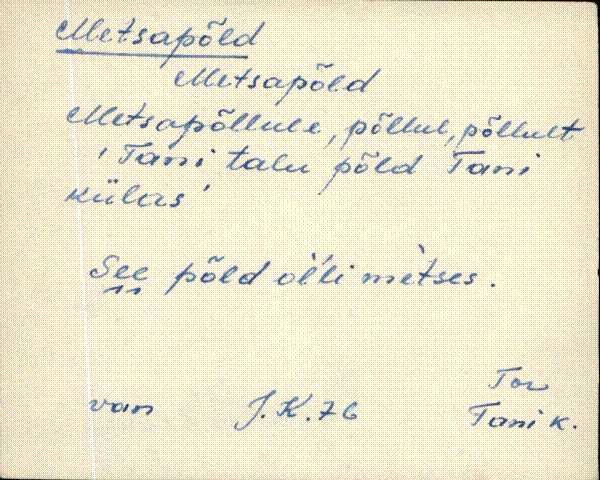 Metsapõld
Metsapõld
Metsapõllule, põllul, põllult
'Tani talu põld Tani
külas'
See põld ol̀l'i mètses.
van J.K.76 Tor
Tani k.